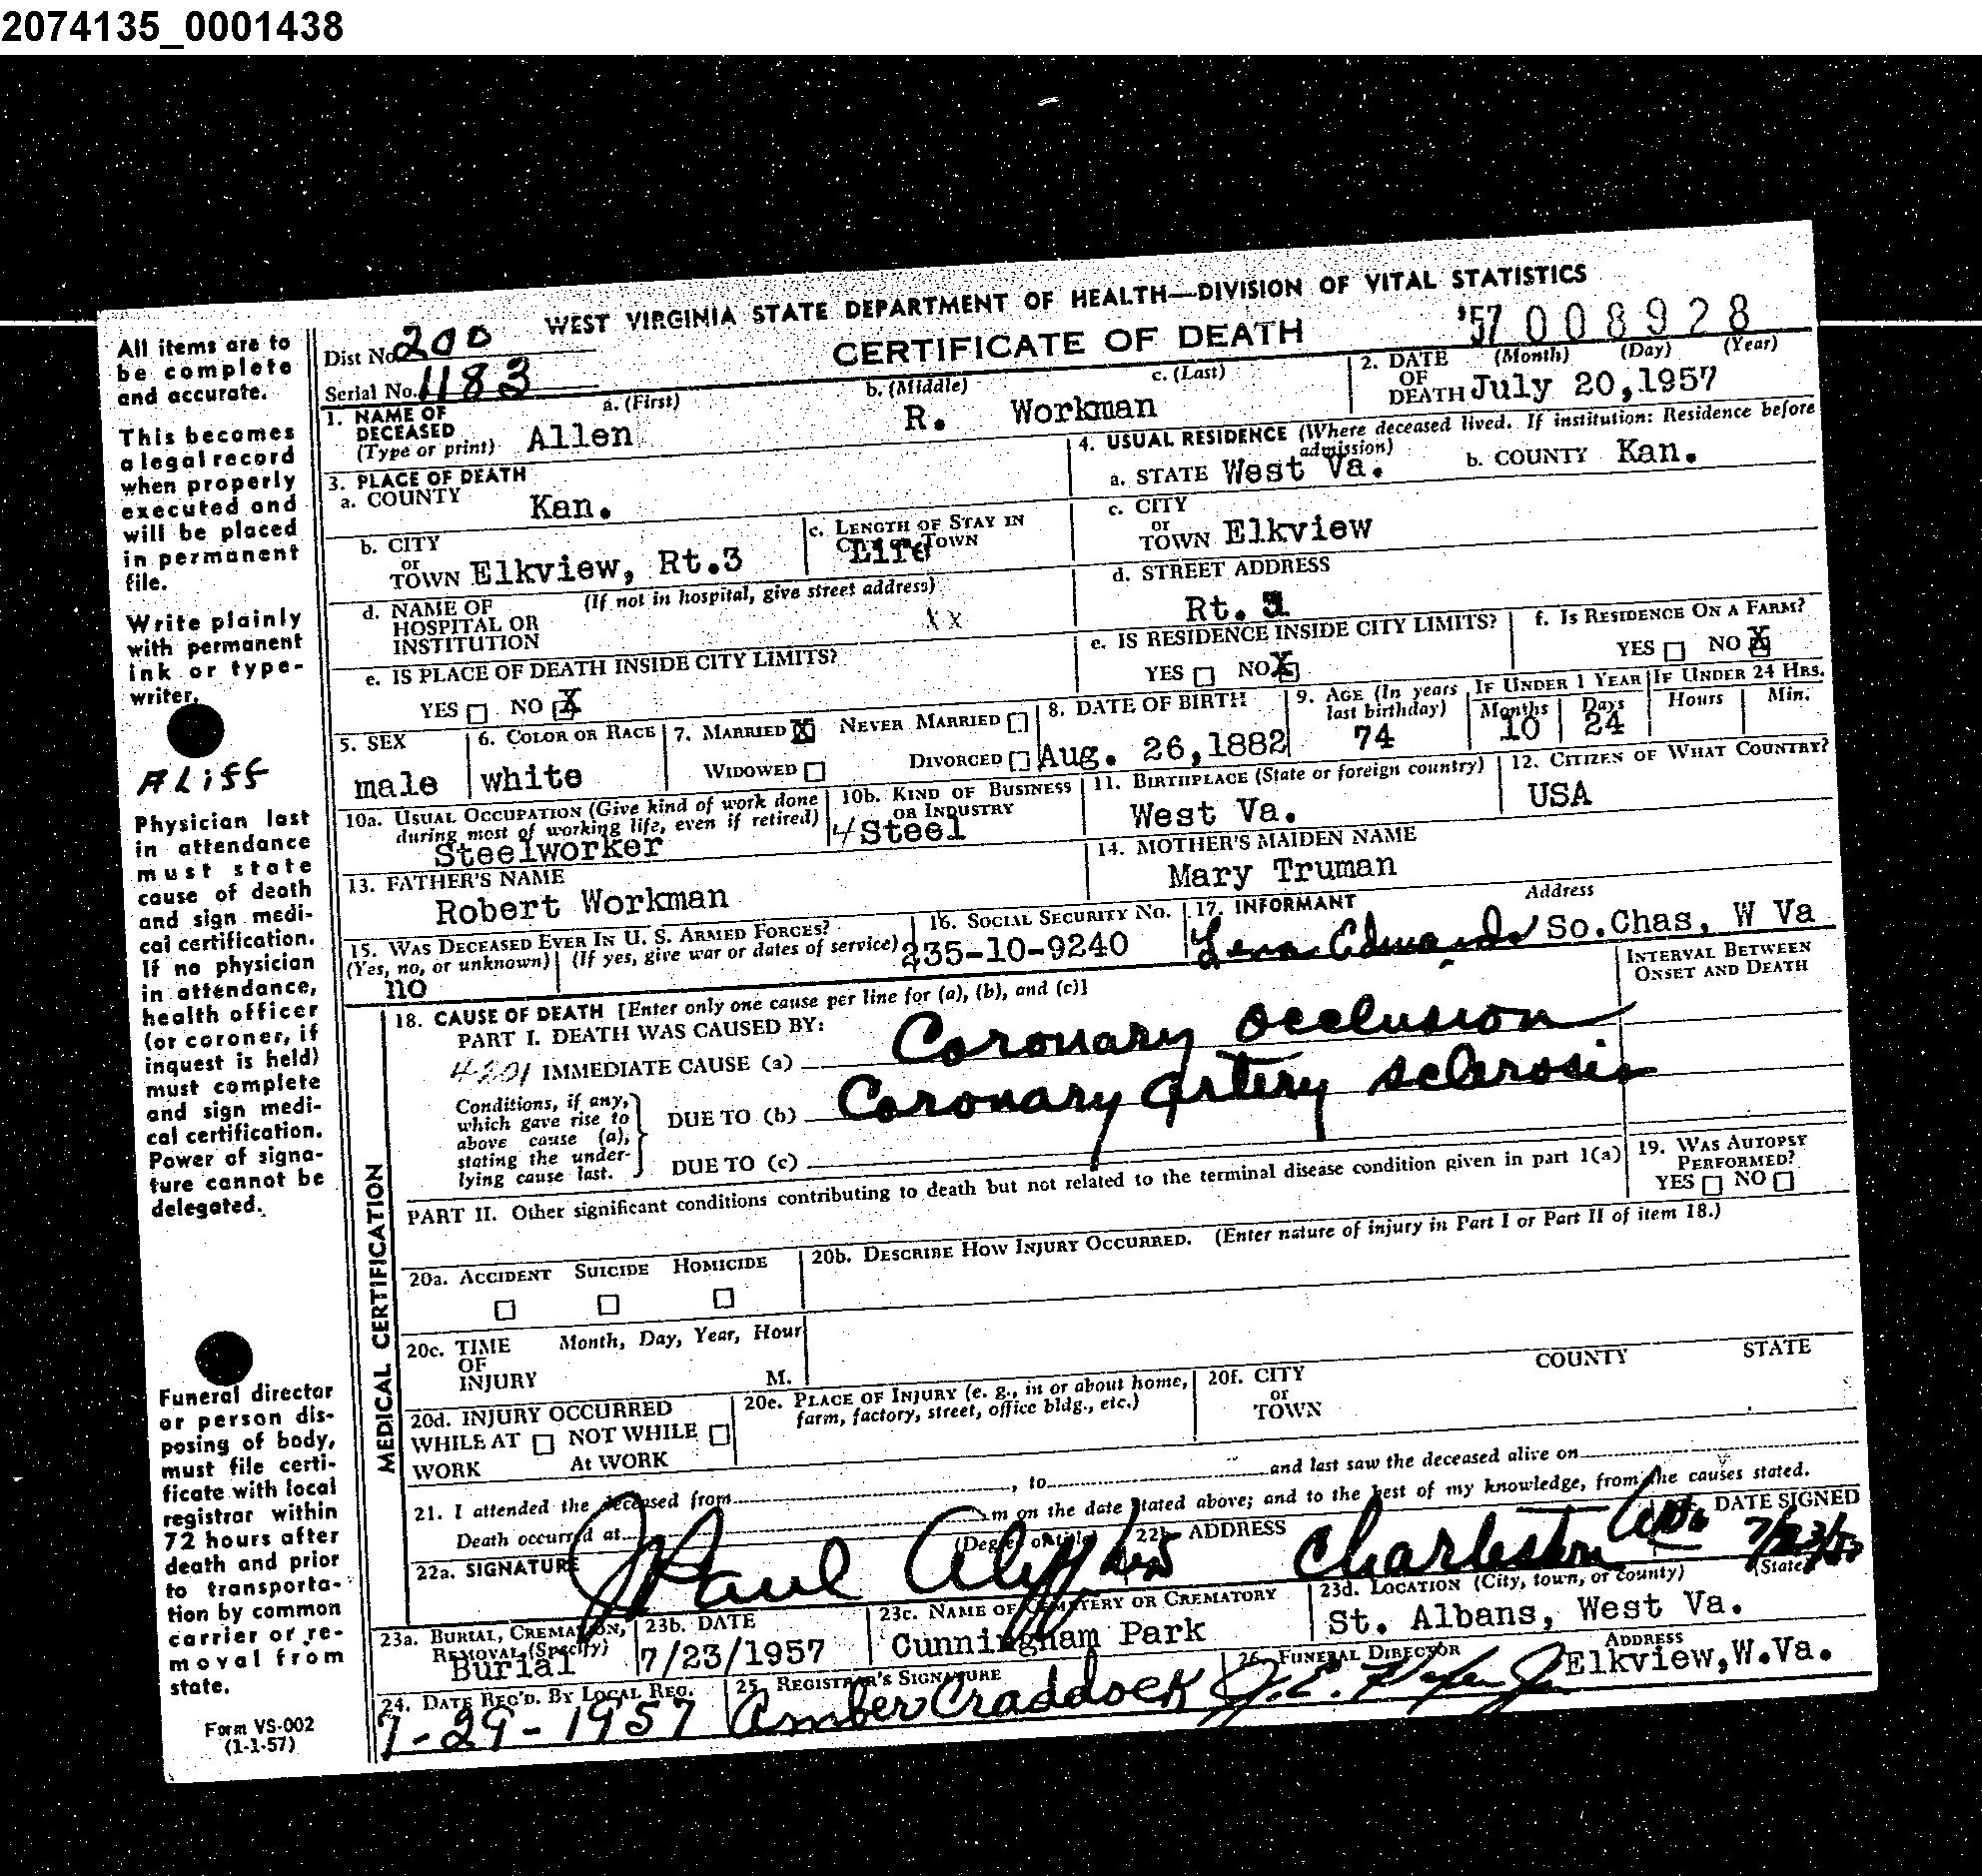 2074135_0001438
WEST VIRGINIA STATE DEPARTMENT OF HEALTH—DIVISION OF VITAL STATISTICS
CERTIFICATE OF DEATH
'57 008928
Dist No. 200
Serial No. 1183
1. NAME OF DECEASED (Type or print) a. (First) Allen b. (Middle) R. c. (Last) Workman
2. DATE OF DEATH (Month) (Day) (Year) July 20,1957
3. PLACE OF DEATH
a. COUNTY Kan.
b. CITY or TOWN Elkview, Rt.3
c. LENGTH OF STAY IN CITY OR TOWN Life
d. NAME OF HOSPITAL OR INSTITUTION (If not in hospital, give street address) xx
e. IS PLACE OF DEATH INSIDE CITY LIMITS?
YES NO X
4. USUAL RESIDENCE (Where deceased lived. If institution: Residence before admission)
a. STATE West Va. b. COUNTY Kan.
c. CITY or TOWN Elkview
d. STREET ADDRESS
Rt.
e. IS RESIDENCE INSIDE CITY LIMITS?
YES NO X
f. IS RESIDENCE ON A FARM?
YES NO X
5. SEX male
6. COLOR OR RACE white
7. MARRIED X NEVER MARRIED
WIDOWED DIVORCED
8. DATE OF BIRTH Aug. 26,1882
9. AGE (In years last birthday) 74
IF UNDER 1 YEAR Months 10 Days 24
IF UNDER 24 HRS. Hours Min.
10a. USUAL OCCUPATION (Give kind of work done during most of working life, even if retired) Steelworker
10b. KIND OF BUSINESS OR INDUSTRY Steel
11. BIRTHPLACE (State or foreign country) West Va.
12. CITIZEN OF WHAT COUNTRY? USA
13. FATHER'S NAME Robert Workman
14. MOTHER'S MAIDEN NAME Mary Truman
15. WAS DECEASED EVER IN U. S. ARMED FORCES?
(Yes, no, or unknown) (If yes, give war or dates of service)
no
16. SOCIAL SECURITY NO. 235-10-9240
17. INFORMANT Lena Edwards Address So.Chas, W Va
18. CAUSE OF DEATH [Enter only one cause per line for (a), (b), and (c)]
INTERVAL BETWEEN ONSET AND DEATH
PART I. DEATH WAS CAUSED BY:
4201 IMMEDIATE CAUSE (a) Coronary occlusion
Conditions, if any, which gave rise to above cause (a), stating the underlying cause last.
DUE TO (b) Coronary artery sclerosis
DUE TO (c)
PART II. Other significant conditions contributing to death but not related to the terminal disease condition given in part 1(a)
19. WAS AUTOPSY PERFORMED?
YES NO
MEDICAL CERTIFICATION
20a. ACCIDENT SUICIDE HOMICIDE
20b. DESCRIBE HOW INJURY OCCURRED. (Enter nature of injury in Part I or Part II of item 18.)
20c. TIME OF INJURY Month, Day, Year, Hour M.
20d. INJURY OCCURRED
WHILE AT WORK NOT WHILE At WORK
20e. PLACE OF INJURY (e. g., in or about home, farm, factory, street, office bldg., etc.)
20f. CITY or TOWN COUNTY STATE
21. I attended the deceased from , to and last saw the deceased alive on
Death occurred at m on the date stated above; and to the best of my knowledge, from the causes stated.
22a. SIGNATURE J Paul Aliff (Degree or title)
22b. ADDRESS Charleston
DATE SIGNED
23a. BURIAL, CREMATION, REMOVAL (Specify) Burial
23b. DATE 7/23/1957
23c. NAME OF CEMETERY OR CREMATORY Cunningham Park
23d. LOCATION (City, town, or county) (State) St. Albans, West Va.
24. DATE REC'D. BY LOCAL REG. 7-29-1957
25. REGISTRAR'S SIGNATURE Amber Craddock
26. FUNERAL DIRECTOR
ADDRESS Elkview,W.Va.
All items are to
be complete
and accurate.
This becomes
a legal record
when properly
executed and
will be placed
in permanent
file.
Write plainly
with permanent
ink or type-
writer.
ALiff
Physician last
in attendance
must state
cause of death
and sign medi-
cal certification.
If no physician
in attendance,
health officer
(or coroner, if
inquest is held)
must complete
and sign medi-
cal certification.
Power of signa-
ture cannot be
delegated.
Funeral director
or person dis-
posing of body,
must file certi-
ficate with local
registrar within
72 hours after
death and prior
to transporta-
tion by common
carrier or re-
moval from
state.
Form VS-002
(1-1-57)